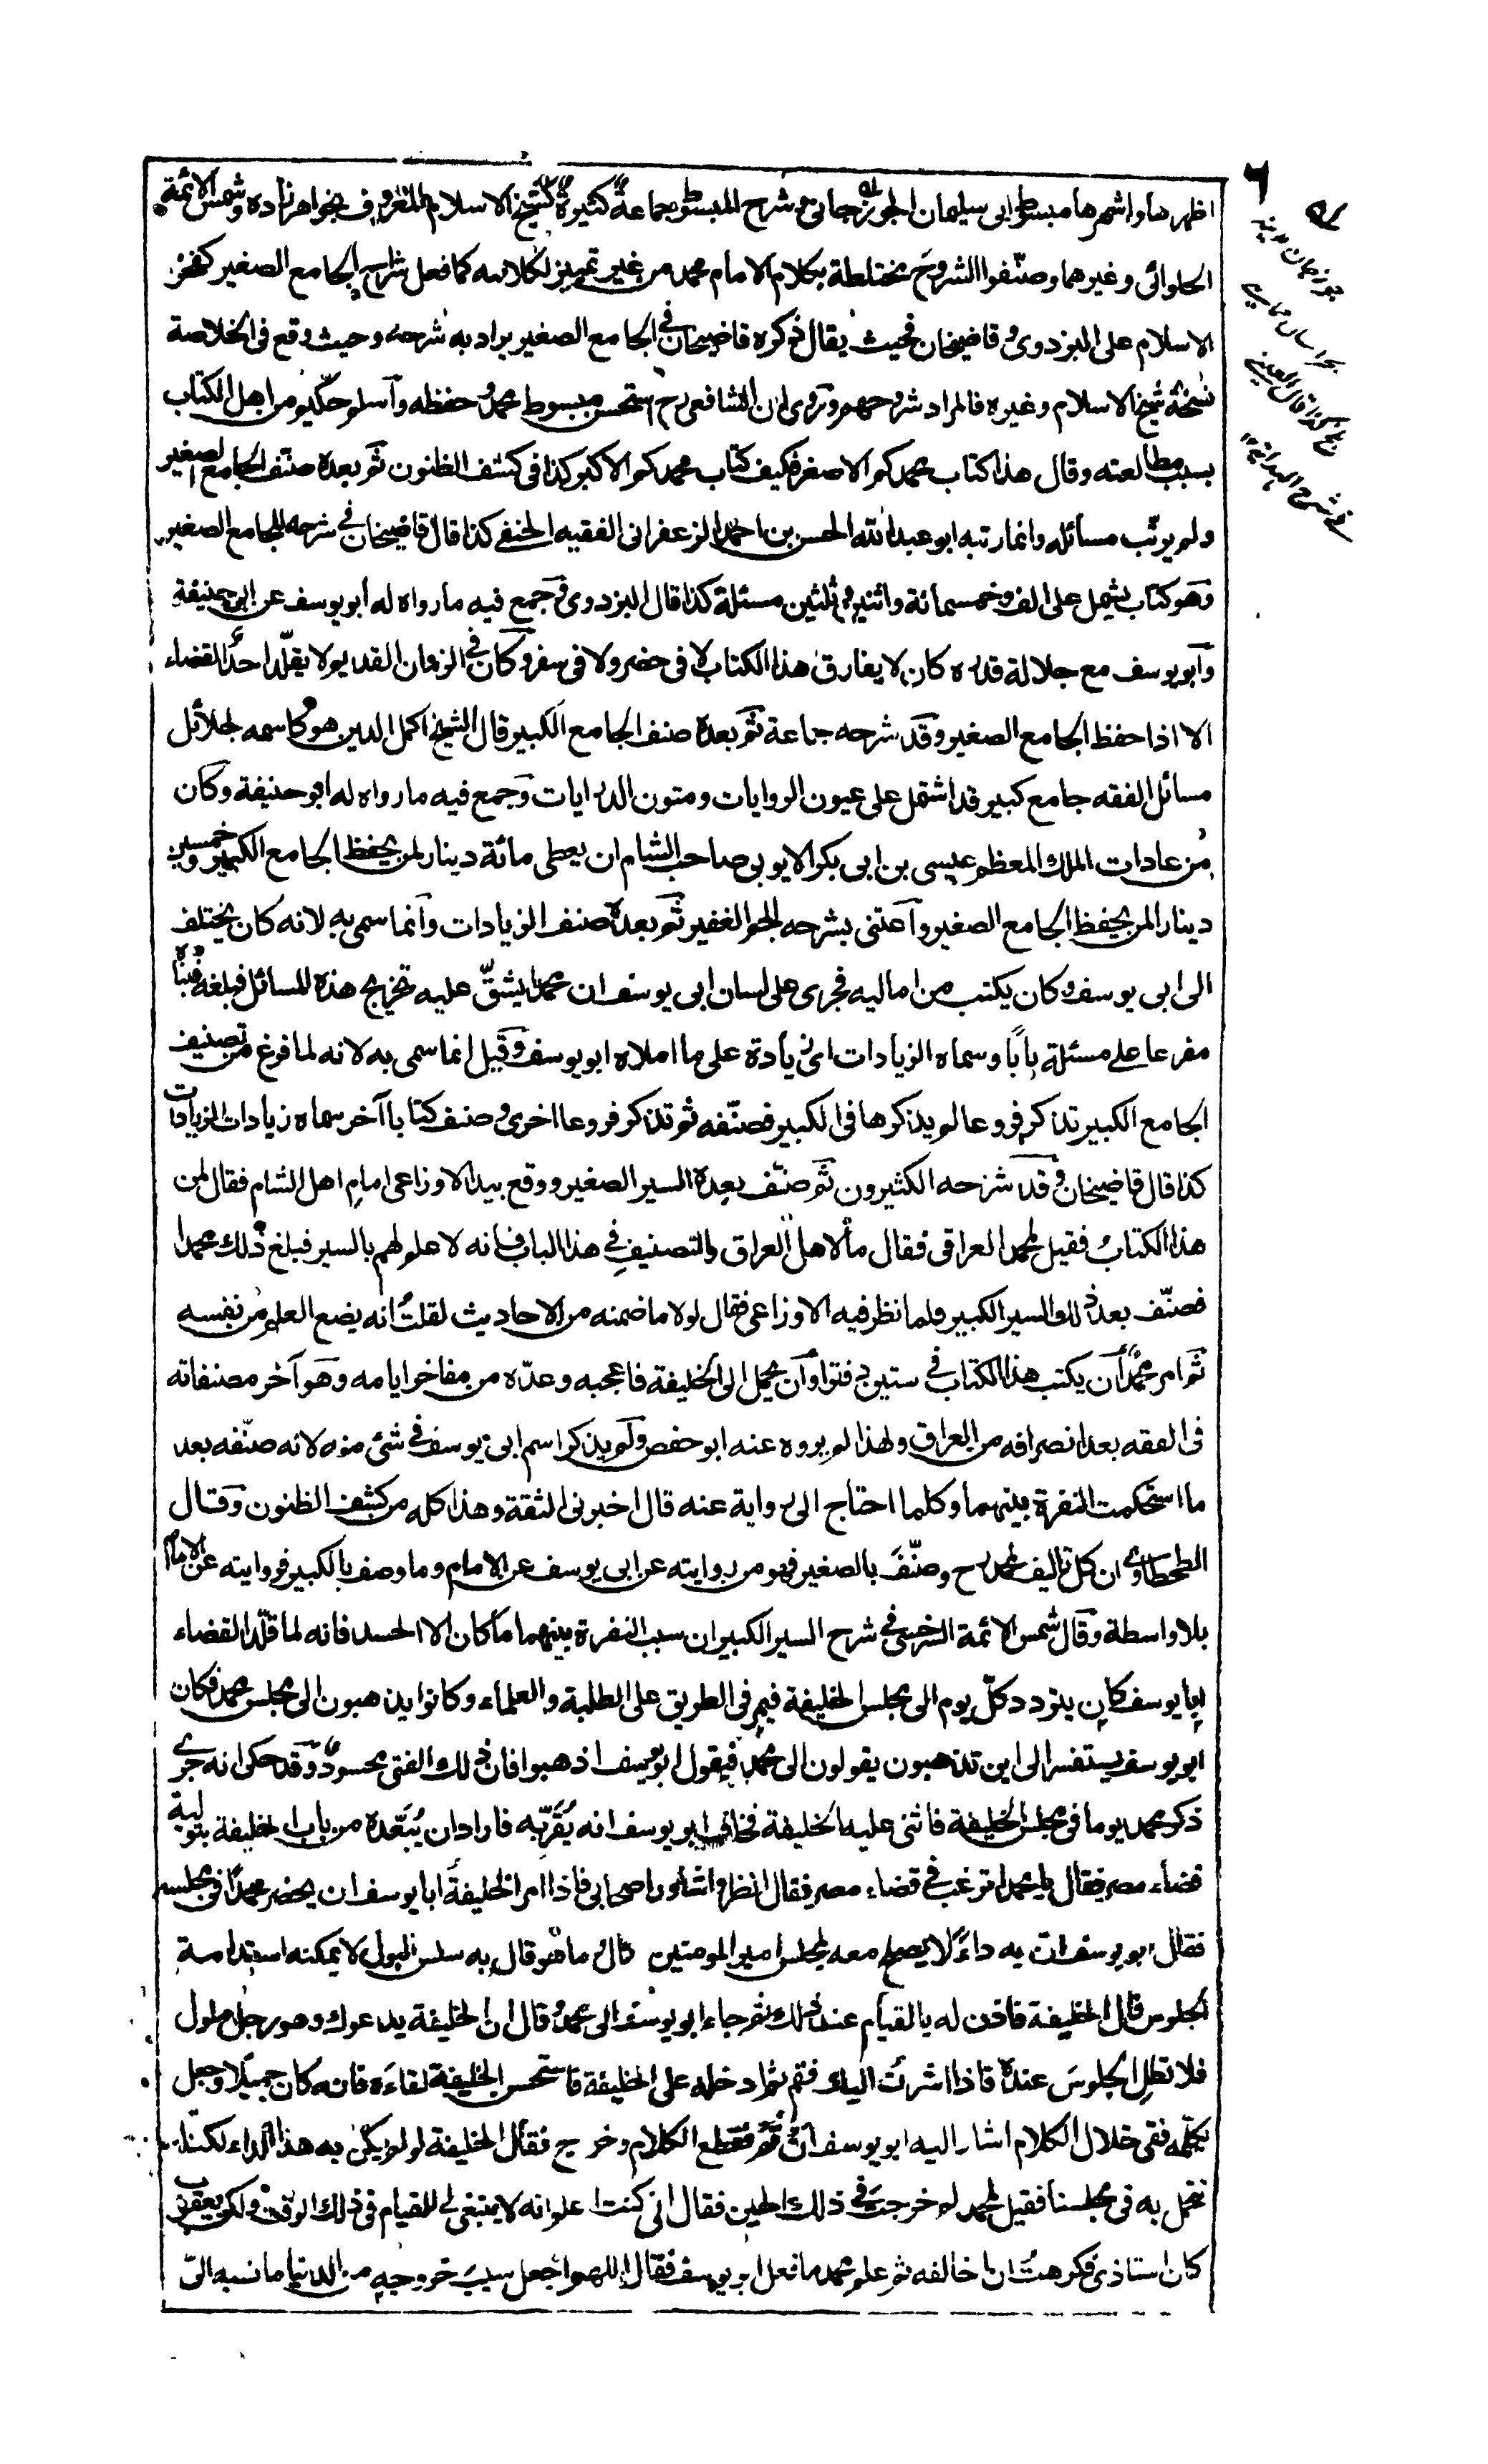 اظهرها واشهرها مبسوط ابى سليمان الجوزجانى وشرح المبسوط جماعة كثيرة كشيخ الاسلام المعروف بخواهر زاده وشمس الائمة
الحلوائى وغيرهما وصنّفوا الشروح مختلطة بكلام الامام محمد من غير تمييز لكلامه كما فعل شارح الجامع الصغير كفخر
الاسلام على البزدوى وقاضيخان فحيث يقال ذكره قاضيخان فى الجامع الصغير يراد به شرحه وحيث وقع فى الخلاصة
نسخة شيخ الاسلام وغيره فالمراد شروحهم وتروى ان الشافعى رح استحسن مبسوط محمد وحفظه وآسلم حكيم من اهل الكتاب
بسبب مطالعته وقال هذا كتاب محمدكم الاصغر فكيف كتاب محمدكم الاكبر كذا فى كشف الظنون ثم بعده صنّف الجامع الصغير
ولم يرتّب مسائله وانما رتبه ابو عبد الله الحسن بن احمد الزعفرانى الفقيه الحنفى كذا قال قاضيخان فى شرحه للجامع الصغير
وهو كتاب يشمل على الف وخمسمائة واثنين وثلثين مسئلة كذا قال البزدوى وجمع فيه ما رواه له أبو يوسف عن ابى حنيفة
وآبو يوسف مع جلالة قدره كان لا يفارق هذا الكتاب لا فى حضر ولا فى سفر وكان فى الزمان القديم لا يقلّد احدٌ القضاء
الا اذا حفظ الجامع الصغير وقد شرحه جماعة ثم بعده صنف الجامع الكبير قال الشيخ اكمل الدين هو كاسمه لجلائل
مسائل الفقه جامع كبير قد اشتمل على عيون الروايات ومتون الدرايات وجمع فيه ما رواه له ابو حنيفة وكان
من عادات الملك المعظم عيسى بن ابى بكر الايوبى صاحب الشام ان يعطى مائة دينار لمن يحفظ الجامع الكبير وخمسين
دينارا لمن يحفظ الجامع الصغير وآعتنى بشرحه الجم الغفير ثم بعده صنف الزيادات وآنما سمى به لانه كان يختلف
الى ابى يوسف وكان يكتب من اماليه فجرى على لسان ابى يوسف ان محمدا يشقّ عليه تخريج هذه المسائل فبلغه فبناه
مفرعا على مسئلة بابًا وسماه الزيادات اى زيادة على ما املاه ابو يوسف وقيل انما سمى به لانه لما فرغ من تصنيف
الجامع الكبير تذكر فروعا لم يذكرها فى الكبير فصنّفه ثم تذكر فروعا اخرى وصنف كتابا آخر سماه زيادات الزيادات
كذا قال قاضيخان وقد شرحه الكثيرون ثم صنّف بعده السير الصغير ووقع بيد الاوزاعى امام اهل الشام فقال لمن
هذا الكتاب فقيل لمحمد العراقى فقال ما لاهل العراق والتصنيف فى هذا الباب فانه لا علم لهم بالسير فبلغ ذلك محمدا
فصنّف بعد ذلك السير الكبير فلما نظر فيه الاوزاعى فقال لولا ما ضمنه من الاحاديث لقلت انه يضع العلم من نفسه
ثم امر محمدٌ أن يكتب هذا الكتاب فى ستين دفترا وآن يحمل الى الخليفة فاعجبه وعدّه من مفاخر ايامه وهو آخر مصنفاته
فى الفقه بعد انصرافه من العراق ولهذا لم يروه عنه ابو حفص ولم يذكر اسم ابى يوسف فى شئ منه لانه صنّفه بعد
ما استحكمت النفرة بينهما وكلما احتاج الى رواية عنه قال اخبرنى الثقة وهذا كله من كشف الظنون وقال
الطحطاوى ان كل تاليف لمحمد رح وصنّف بالصغير فهو من روايته عن ابى يوسف عن الامام وما وصف بالكبير فروايته عن الامام
بلا واسطة وقال شمس الائمة السرخسى فى شرح السير الكبير ان سبب النفرة بينهما ما كان الا الحسد فانه لما قلّد القضاء
ابا يوسف كان يتردد كلّ يوم الى مجلس الخليفة فيمر فى الطريق على الطلبة والعلماء وكانوا يذهبون الى مجلس محمد فكان
ابو يوسف يستفسر الى اين تذهبون يقولون الى محمد فيقول ابو يوسف اذهبوا فان ذلك الفتى محسود وقد حكى انه جرى
ذكر محمد يوما فى مجلس الخليفة فاثنى عليه الخليفة فخاف ابو يوسف انه يُقَرّبه فاراد ان يُبَعّده من باب الخليفة بتولية
قضاء مصر فقال يا محمد اترغب فى قضاء مصر فقال انظر واشاور اصحابى فاذا امر الخليفة أبا يوسف ان يحضر محمدًا فى مجلسه
فقال ابو يوسف ان به داءً لا يصلح معه لمجلس امير المومنين قال ما هو قال به سلس البول لا يمكنه استدامة
الجلوس قال الخليفة فاذن له بالقيام عند ذلك ثم جاء ابو يوسف الى محمد وقال ان الخليفة يدعوك وهو رجل ملول
فلا تطل الجلوسَ عنده فاذا اشرت اليك فقم ثم ادخله على الخليفة فاستحسن الخليفة لقاءَه فانه كان جميلا وجعل
يكلّمه ففى خلال الكلام اشار اليه ابو يوسف ان قم فقطع الكلام وخرج فقال الخليفة لو لم يكن به هذا الداء لكنا
نتجمل به فى مجلسنا فقيل لمحمد لم خرجت فى ذلك الحين فقال انى كنت اعلم انه لا ينبغى لى القيام فى ذلك الوقت ولكن يعقوب
كان استاذى فكرهتُ ان اخالفه ثم علم محمد ما فعل ابو يوسف فقال اللهم اجعل سببَ خروجه من الدنيا ما نسبه الىّ
٦
جوزجان مدينة
بخراسان
كذا قال العينى
فى شرح الهداية